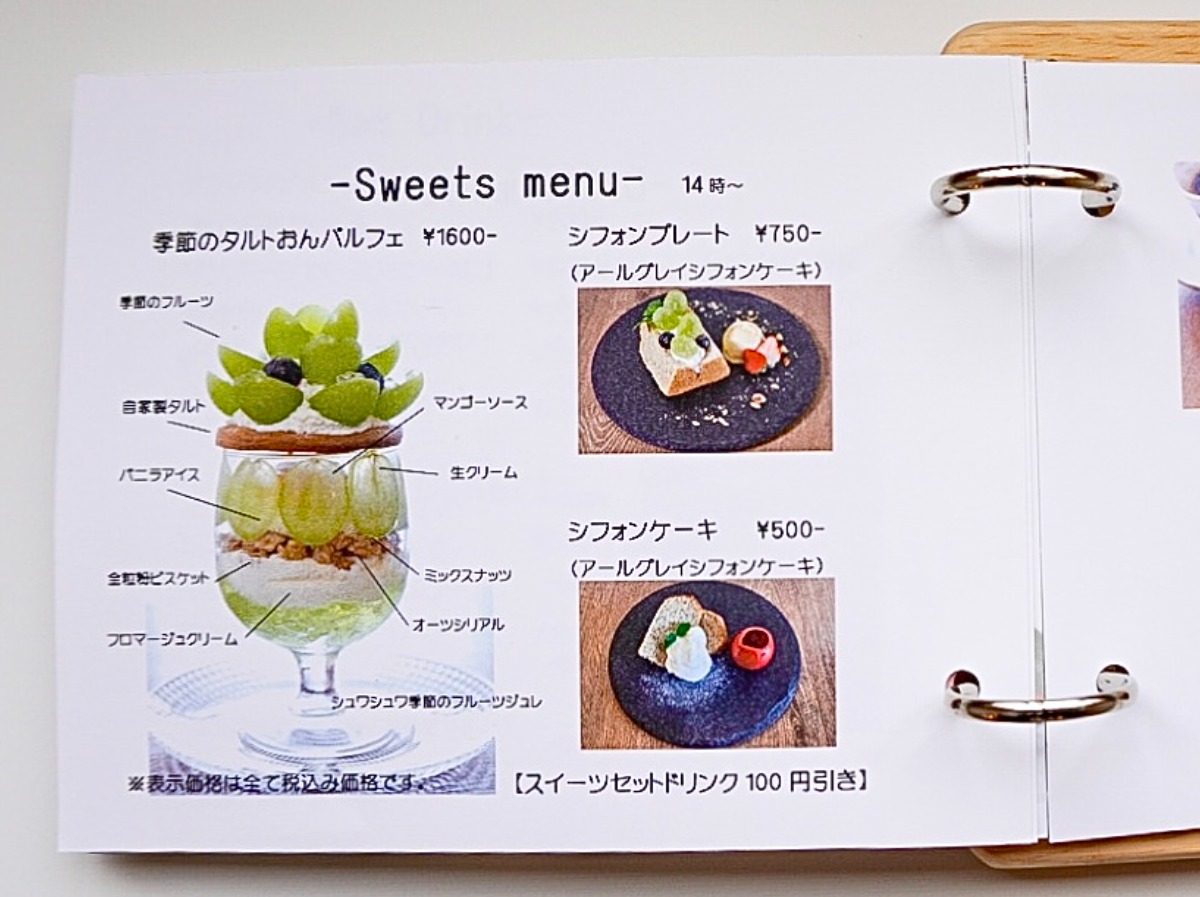 -Sweets menu- 14時～
季節のタルトおんパルフェ ¥1600-
季節のフルーツ
自家製タルト
マンゴーソース
バニラアイス
生クリーム
全粒粉ビスケット
ミックスナッツ
オーツシリアル
フロマージュクリーム
シュワシュワ季節のフルーツジュレ
※表示価格は全て税込み価格です。
シフォンプレート ¥750-
(アールグレイシフォンケーキ)
シフォンケーキ ¥500-
(アールグレイシフォンケーキ)
【スイーツセットドリンク100円引き】